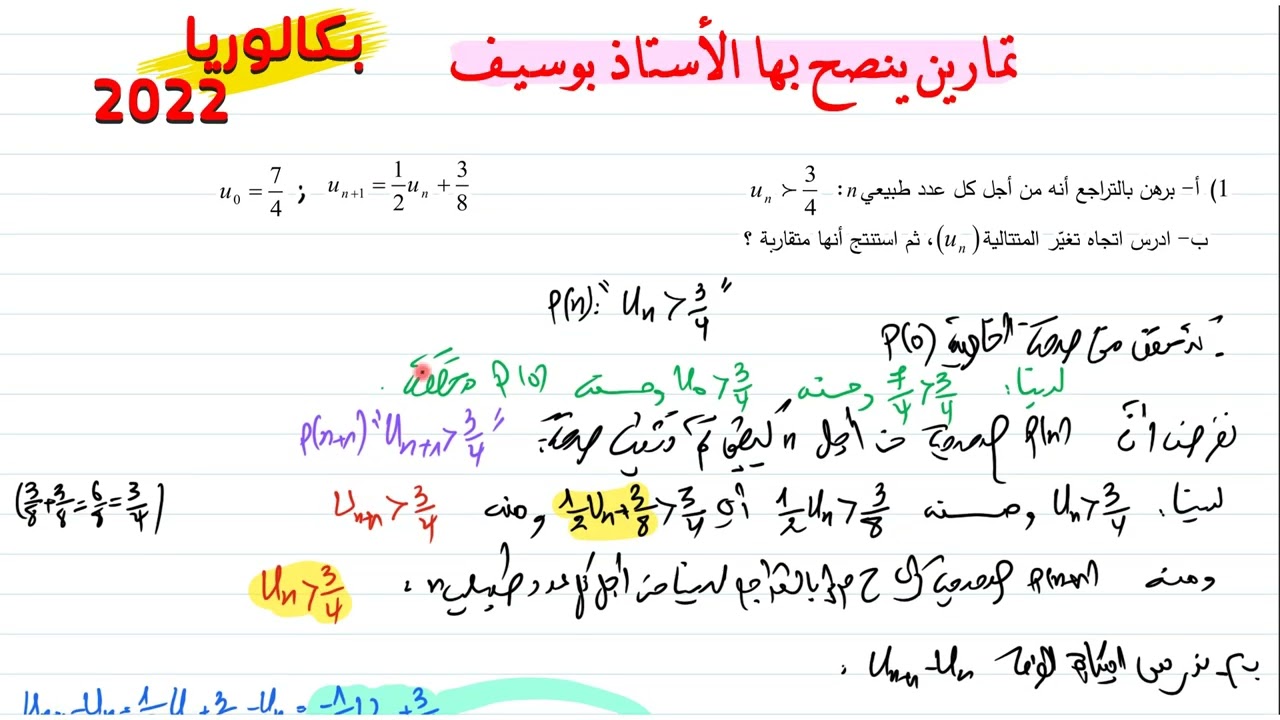 تمارين ينصح بها الأستاذ بوسيف
بكالوريا
2022
1) أ- برهن بالتراجع أنه من أجل كل عدد طبيعي n : u_n ≻ 3/4
u_0 = 7/4 ; u_{n+1} = 1/2 u_n + 3/8
ب- ادرس اتجاه تغيّر المتتالية (u_n)، ثم استنتج أنها متقاربة ؟
P(n): " U_n > 3/4 "
نتحقق من صحة الخاصية P(0)
لدينا: 7/4 > 3/4 ومنه U_0 > 3/4 ومنه P(0) محققة .
نفرض أن P(n) صحيحة من أجل n كيفي ونثبت صحة: P(n+1) " U_{n+1} > 3/4 "
لدينا: U_n > 3/4 ومنه 1/2 U_n > 3/8 أي 1/2 U_n + 3/8 > 3/4 ومنه U_{n+1} > 3/4
(3/8 + 3/8 = 6/8 = 3/4)
ومنه P(n+1) صحيحة بالتراجع لدينا من أجل كل عدد طبيعي n : U_n > 3/4
ب- ندرس إشارة الفرق U_{n+1} - U_n .
U_{n+1} - U_n = 1/2 U_n + 3/8 - U_n = -1/2 U_n + 3/8